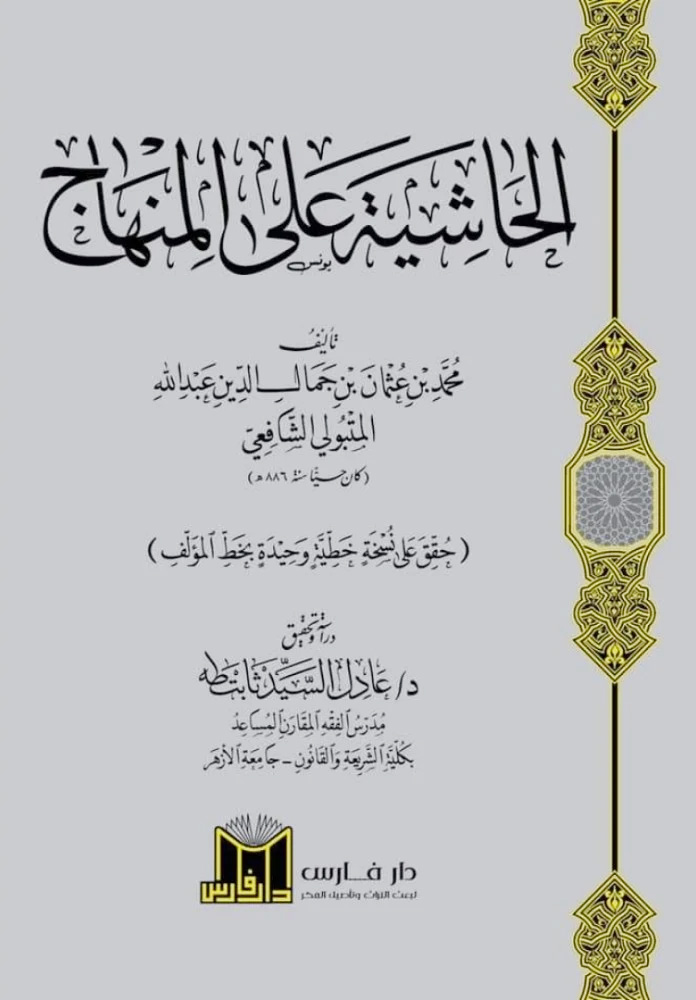 الحَاشِيَة عَلى المِنْهَاج
يونس
تأليفُ
مُحَمَّد بْن عُثْمَان بْن جَمَال الدِّين عَبْد الله
المَتْبُولي الشَّافِعِيّ
(كان حيًّا سنة ٨٨٦ هـ)
(حُقِّقَ عَلى نُسْخَةٍ خَطِّيَّةٍ وَحِيْدَةٍ بِخَطِّ المؤلِّفِ)
دراسة وتحقيق
د/ عَادِل السَّيِّد ثَابِت طه
مُدَرِّسُ الفِقْهِ المُقَارَنِ المُسَاعِدُ
بكُلِّيَّةِ الشَّرِيْعَةِ وَالقَانُونِ - جَامِعَةِ الأزْهَر
دار فارس
دار فــارس
لبعث التراث وتأصيل الفكر